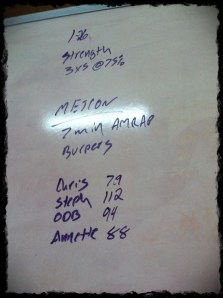 1-26.
Strength
3x5 @ 75%
METCON
7 min AMRAP
Burpees
Chris 79
Steph 112
ODB 94
Annette 88